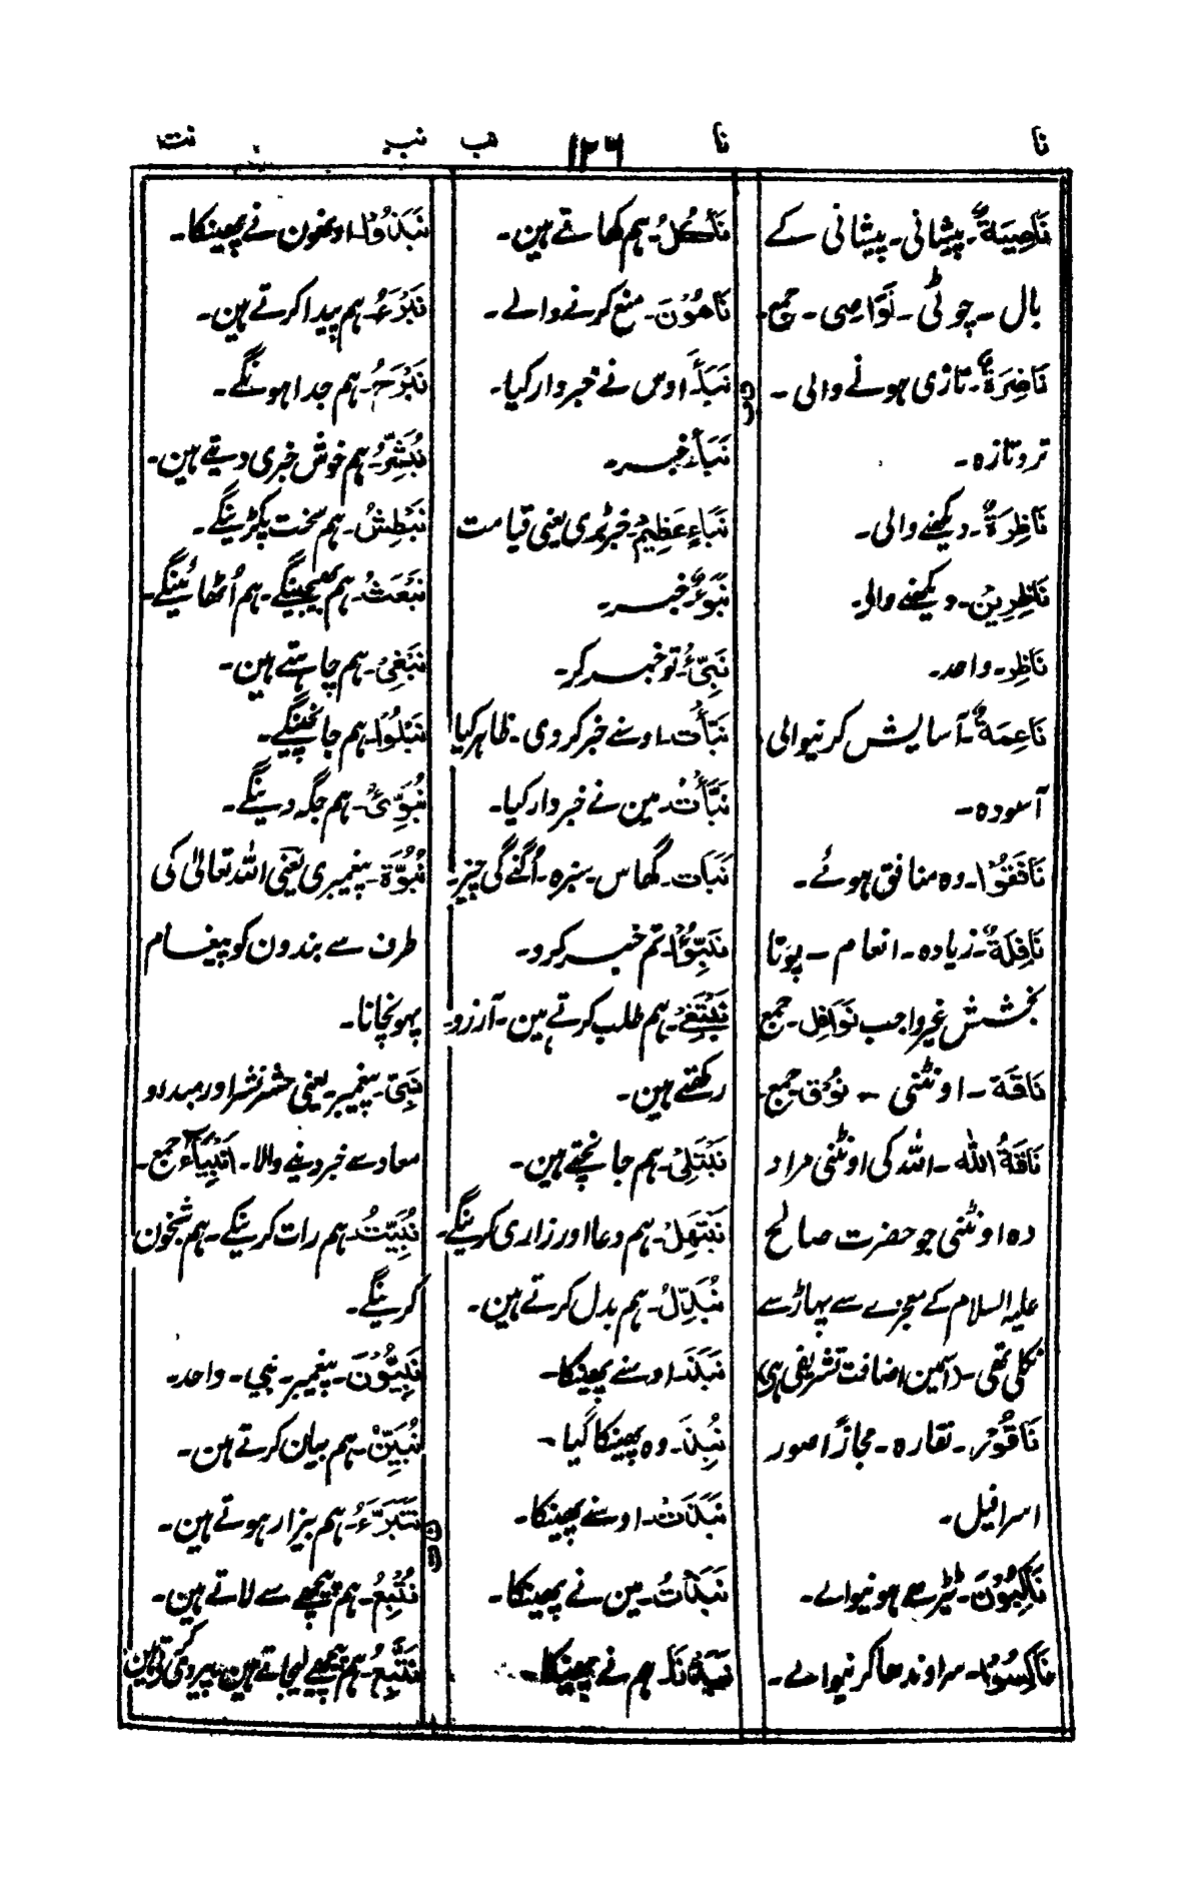 نا
نا
۱۲۶
نب
نب
نت
نَاصِیَةٌ۔ پیشانی۔ پیشانی کے
بال۔ چوٹی۔ نَوَاصِی۔ جمع۔
نَاضِرَةٌ۔ تازی ہونے والی۔
تر و تازہ۔
نَاظِرَةٌ۔ دیکھنے والی۔
نَاظِرِیْن۔ دیکھنے والے۔
نَاظِر۔ واحد۔
نَاعِمَةٌ۔ آسایش کرنیوالی
آسودہ۔
نَافَقُوْا۔ وہ منافق ہوئے۔
نَافِلَةٌ۔ زیادہ۔ انعام۔ پوتا
بخشش غیر واجب نَوَافِل۔ جمع
نَاقَة۔ اونٹنی۔ نُوْق جمع۔
نَاقَةُ اللّٰه۔ اللہ کی اونٹنی مراد
وہ اونٹنی جو حضرت صالح
علیہ السلام کے معجزے سے پہاڑ سے
نکلی تھی۔ (اسمین اضافت تشریفی ہی)
نَاقُوْر۔ نقارہ۔ مجازًا صور
اسرافیل۔
نَاكِبُوْنَ۔ ٹیڑھے ہونیوالے۔
نَاكِسُوْا۔ سر اوندھا کرنیوالے۔
نَأْكُلُ۔ ہم کھاتے ہین۔
نَاهُوْنَ۔ منع کرنے والے۔
نب
نَبَّأَ۔ اوس نے خبردار کیا۔
نَبَأ۔ خبر۔
نَبَاءٍ عَظِیْم۔ خبر بڑی یعنی قیامت
نَبَؤٌ۔ خبر۔
نَبِّئْ۔ تو خبر کر۔
نَبَّأَت۔ اوسنے خبر کر دی۔ ظاہر کیا
نَبَّأْتُ۔ مین نے خبردار کیا۔
نَبَات۔ گھاس۔ سبزہ۔ اُگنے کی چیز۔
نَبِّئُوْا۔ تم خبر کرو۔
نَبْتَغِیْ۔ ہم طلب کرتے ہین۔ آرزو
رکھتے ہین۔
نَبْتَلِیْ۔ ہم جانچتے ہین۔
نَبْتَهِلْ۔ ہم دعا اور زاری کرینگے۔
نُبَدِّلُ۔ ہم بدل کرتے ہین۔
نَبَذَ۔ اوسنے پھینکا۔
نُبِذَ۔ وہ پھینکا گیا۔
نَبَذَتْ۔ اوسنے پھینکا۔
نَبَذْتُ۔ مین نے پھینکا۔
نَبَذْنَا۔ ہم نے پھینکا۔
نَبَذُوْا۔ اونھون نے پھینکا۔
نَبْرَءُ۔ ہم پیدا کرتے ہین۔
نَبْرَحُ۔ ہم جدا ہونگے۔
نُبَشِّرُ۔ ہم خوش خبری دیتے ہین۔
نَبْطِشُ۔ ہم سخت پکڑینگے۔
نَبْعَثُ۔ ہم بھیجینگے۔ ہم اُٹھائینگے۔
نَبْغِیْ۔ ہم چاہتے ہین۔
نَبْلُوَا۔ ہم جانچینگے۔
نُبَوِّئُ۔ ہم جگہ دینگے۔
نُبُوَّة۔ پیغمبری یعنی اللہ تعالیٰ کی
طرف سے بندون کو پیغام
پہونچانا۔
نَبِیّ۔ پیغمبر۔ یعنی حشر نشر اور مبدء و
معاد سے خبر دینے والا۔ اَنْبِیَآء جمع۔
نُبَیِّتُ۔ ہم رات کرینگے۔ ہم شبخون
کرینگے۔
نَبِیُّوْنَ۔ پیغمبر۔ نبی۔ واحد۔
نُبَیِّنُ۔ ہم بیان کرتے ہین۔
نت
نَتَبَرَّءُ۔ ہم بیزار ہوتے ہین۔
نُتْبِعُ۔ ہم پیچھے سے لاتے ہین۔
نَتَّبِعُ۔ ہم پیچھے لیجاتے ہین پیروی کرتے ہین